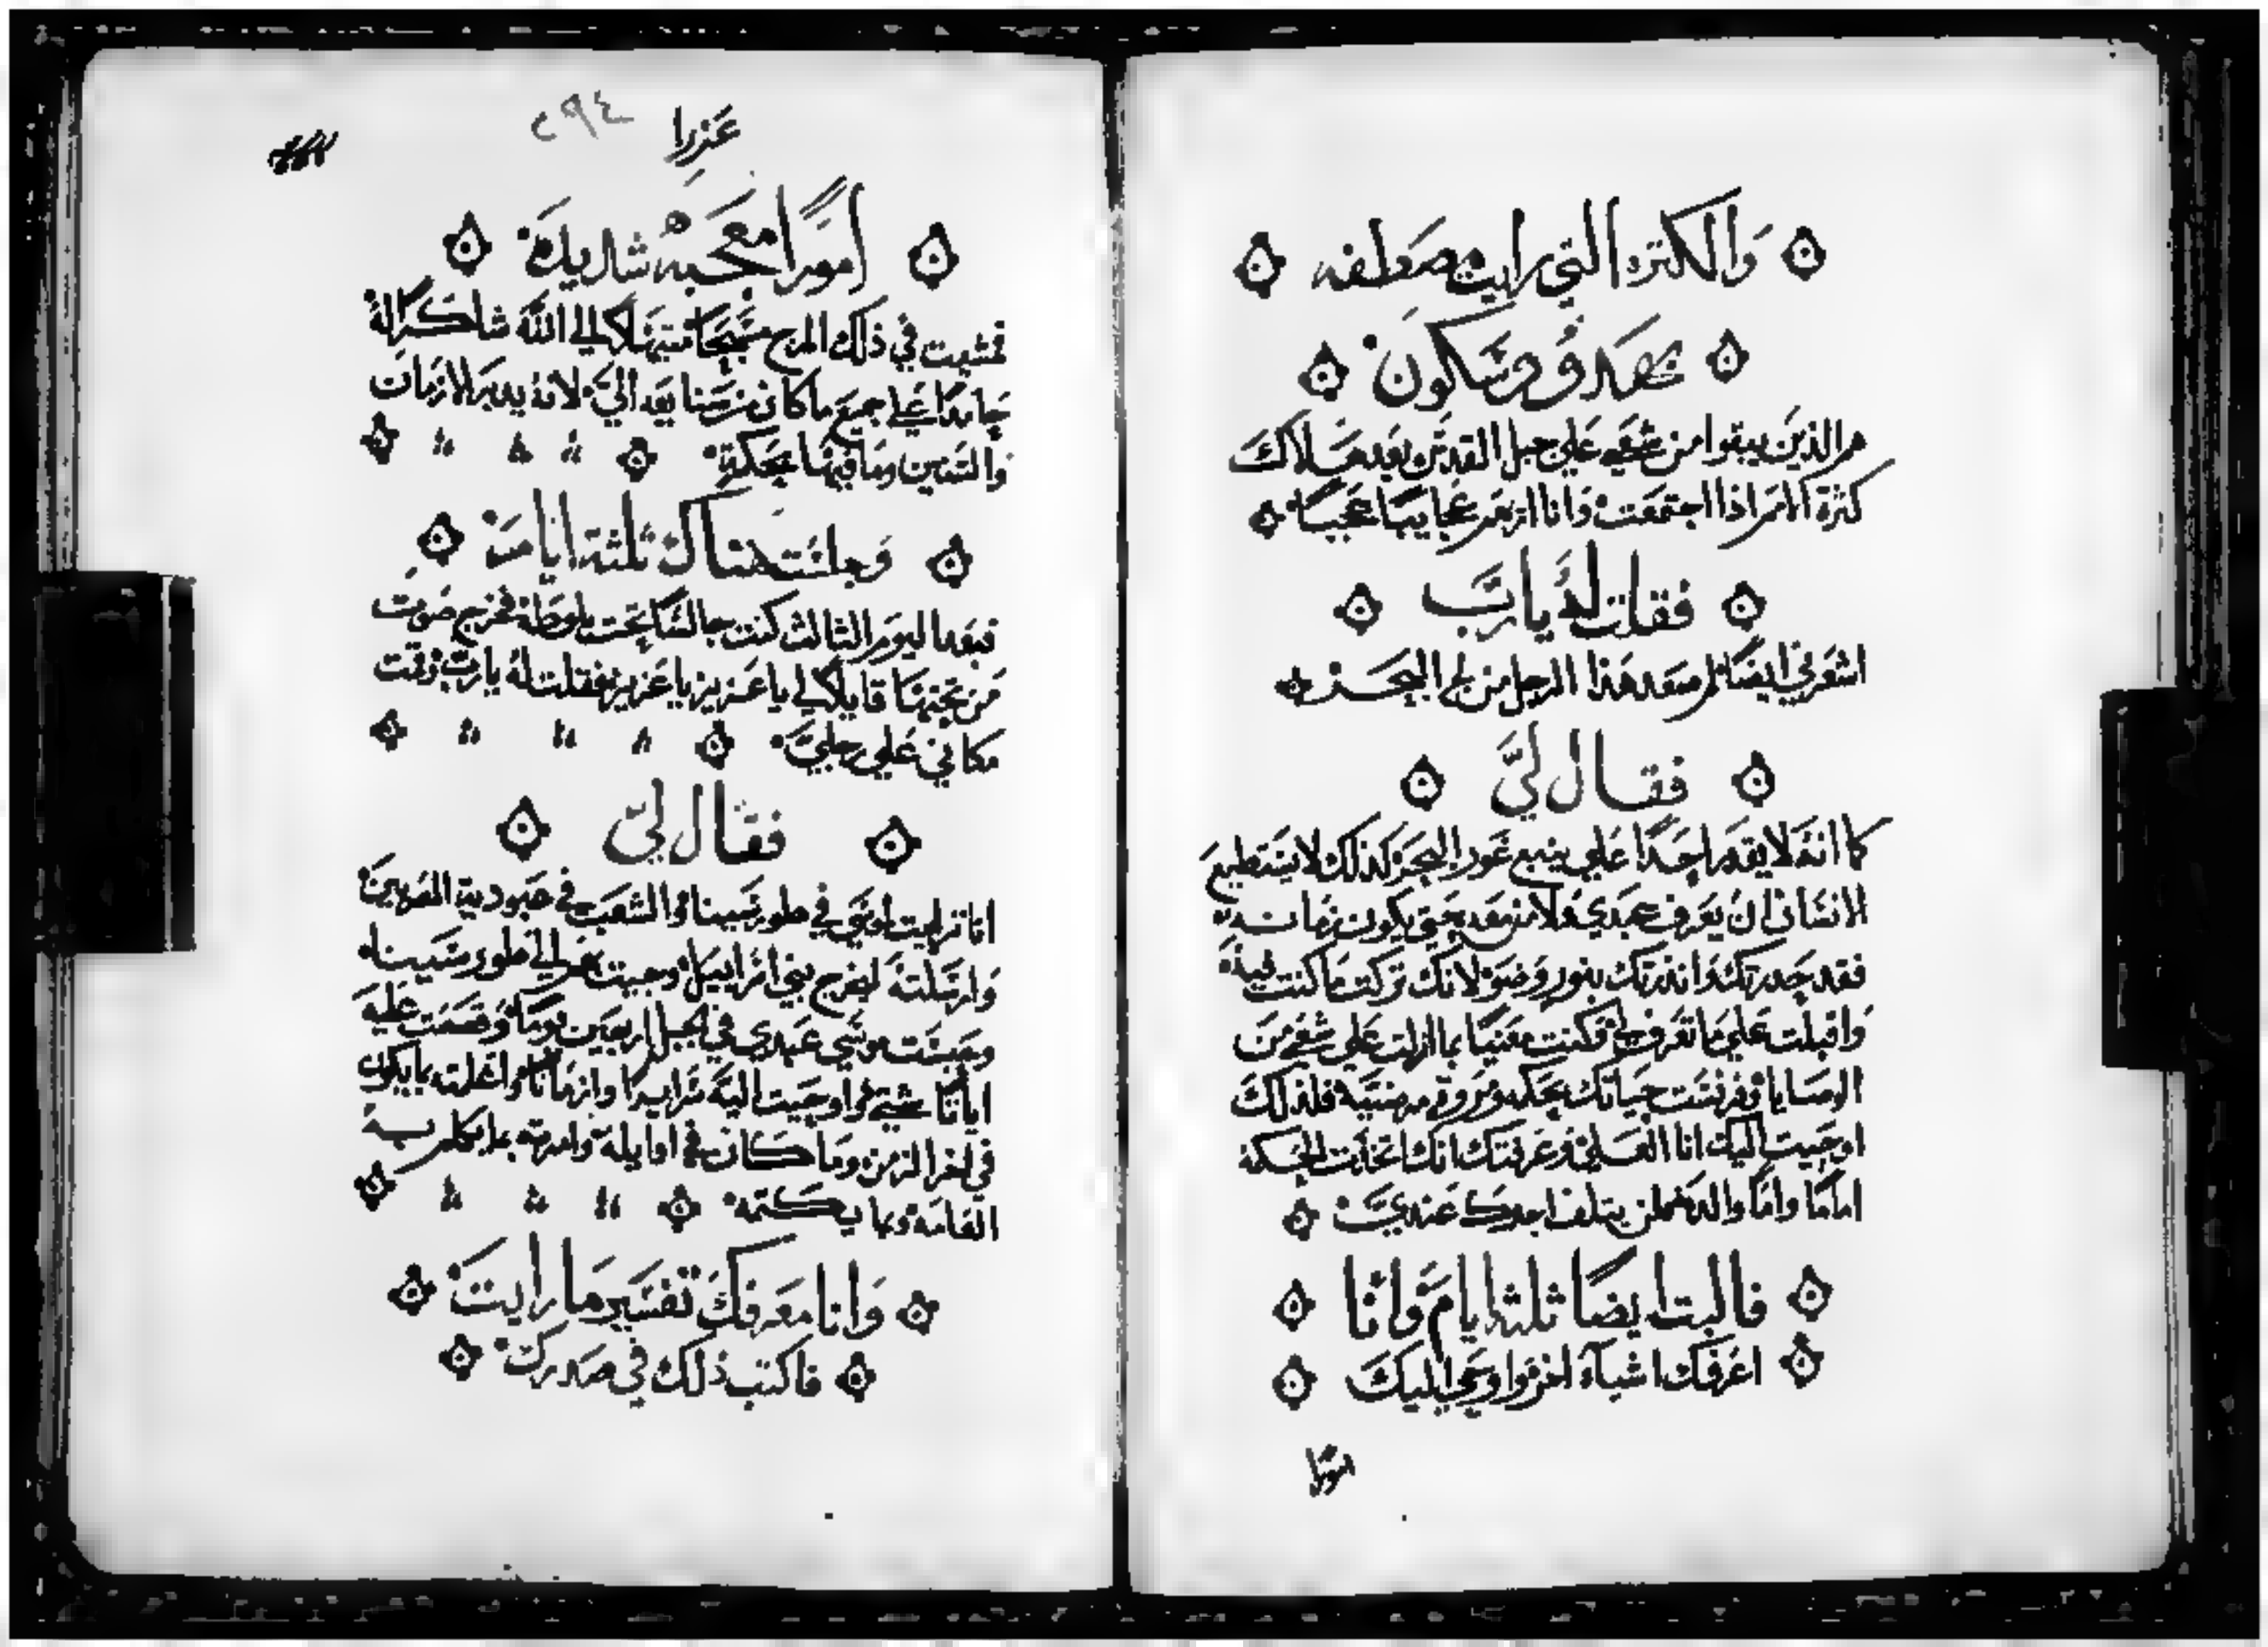 والكثرة التي رايت مصطفه
بهدو وسكون
هم الذين يبقوا من شعبي علي جبل القدس بعد هلاك
كثرة الامم اذا اجتمعت وانا ازمعهم عجايبا عجيبا
فقلت له يا رب
اشعرني ايضا لم صعد هذا الرجل من لج البحر
فقال لي
كما انه لا يقدر احدا علي ينبع غور البحر كذلك لا يستطيع
الانسان ان يعرف عبدي ولا من معه حتي يكون زمانه
فقد وانذرتك بنور وضو لانك تركت ما كنت فيه
واقبلت علي ما تعرف فكنت معنيا بما انزلت علي شعبي من
الوصايا وفرنست حياتك بحكمه فلذلك
اوحيت اليك انا العلي وعرفتك انك اتخذت الحكمة
اماما واما والدهم لن يتلف اجرك عندي
فالبت ايضا ثلثة ايام وانا
اعرفك اشياء اخر واوحي اليك
امورا
عزرا
٢٩٤
امورا معجبه شديدة
فمشيت في ذلك المرج مسبحا مبتهلا الي الله شاكرا له
حامدا علي جميع ما كان من صنايعه الي لانه يدبر الازمان
والسنين وما فيها بحكمة
وجلست هناك ثلثة ايام
فبعد اليوم الثالث كنت جالسا تحت بلوطة فخرج صوت
من تحتها قايلا لي يا عزير يا عزير فقلت له يا رب وقمت
مكاني علي رجلي
فقال لي
انا تراييت لموسي في طور سينا والشعب في عبودية المصريين
وارسلته ليخرج بني اسراييل وجيت بهم الي طور سينا
وحبست موسي عبدي في الجبل اربعين يوما وقصصت عليه
اياتا شتي واوحيت اليه سرايرا وازمانا واعلمته بما يكون
في اخر الزمن وما كان في اوايله وامرته بما يكلم به
العامه وبما يكتمه
وانا معرفك تفسير ما رايت
فاكتب ذلك في صدرك